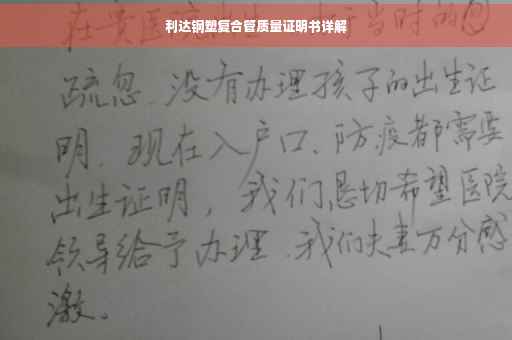 利达钢塑复合管质量证明书详解
在贵医院 当时的
疏忽、没有办理孩子的出生证
明、现在入户口、防疫都需要
出生证明，我们恳切希望医院
领导给予办理、我们夫妻万分感
激。